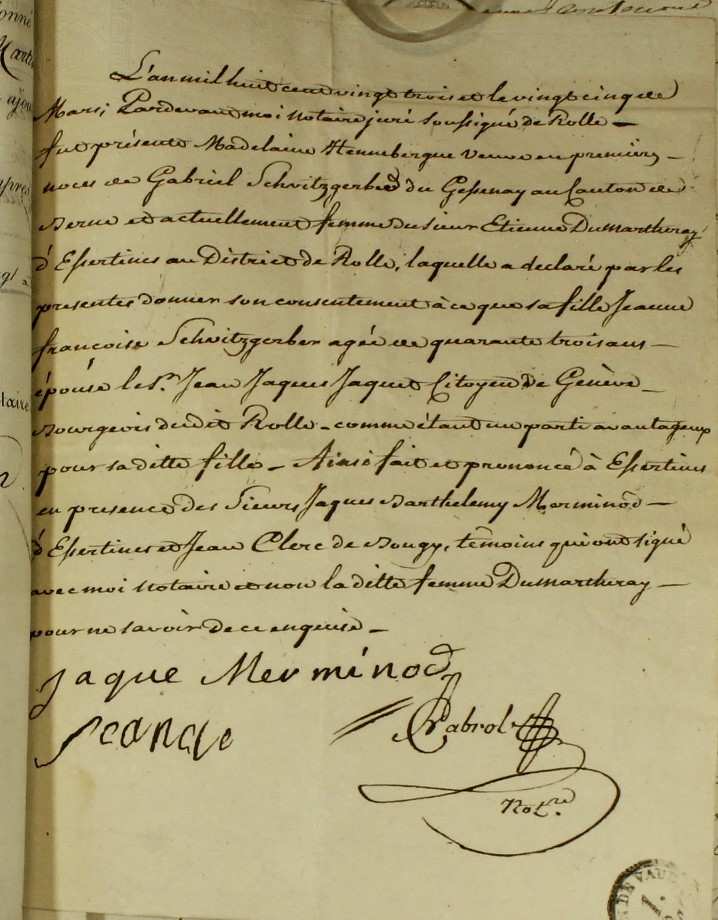 L'an mil huit cent vingt trois et le vingt cinq de
Mars; Pardevant moi notaire juré soussigné de Rolle —
fut présente Madelaine Henneberque veuve en premiers —
noces de Gabriel Schvitzgerber du Gessenay au Canton de
Berne et actuellement femme du sieur Etienne Dumartheray
d'Essertines au District de Rolle, laquelle a déclaré par les
presentes donner son consentement à ce que sa fille Jeanne
françoise Schvitzgerber agée de quarante trois ans —
épouse le Sr. Jean Jaques Jaquet Citoyen de Genève —
Bourgeois dudit Rolle — comme étant un parti avantageux
pour sa ditte fille — Ainsi fait et prononcé à Essertines
en presence des Sieurs Jaques Barthelemy Merminod —
d'Essertines et Jean Clerc de Bougy, témoins qui ont signé
avec moi notaire et non la ditte femme Dumartheray —
pour ne savoir de ce enquise —
Jaque Merminod
Pabrol
Notre.
DE VAUD
1.